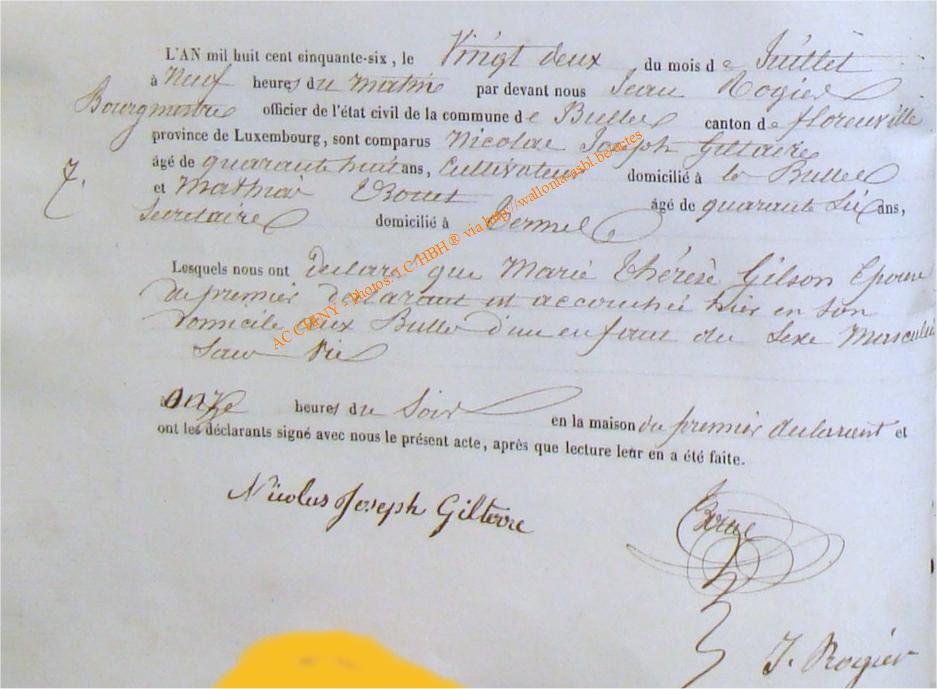 L'AN mil huit cent cinquante-six, le Vingt deux du mois de Juillet
à Neuf heures du matin par devant nous Jean Rogier
Bourgmestre officier de l'état civil de la commune de Bulles canton de florenville
province de Luxembourg, sont comparus Nicolas Joseph Giltaire
âgé de quarante huit ans, Cultivateur domicilié à les Bulles
7.
et Mathias âgé de quarante Six ans,
Secretaire domicilié à Termes
Lesquels nous ont declaré que Marie Thérèse Gilson Epouse
du premier declarant est accouchée hier en son
domicile aux Bulles d'un enfant du Sexe Masculin
Sans Vie
à onze heures du Soir en la maison du premier declarant et
ont les déclarants signé avec nous le présent acte, après que lecture leur en a été faite.
Nicolas Joseph Giltaire
J. Rogier
ACCHINY - Photos: J.C HBH ® via http://wallonia-asbl.be/actes